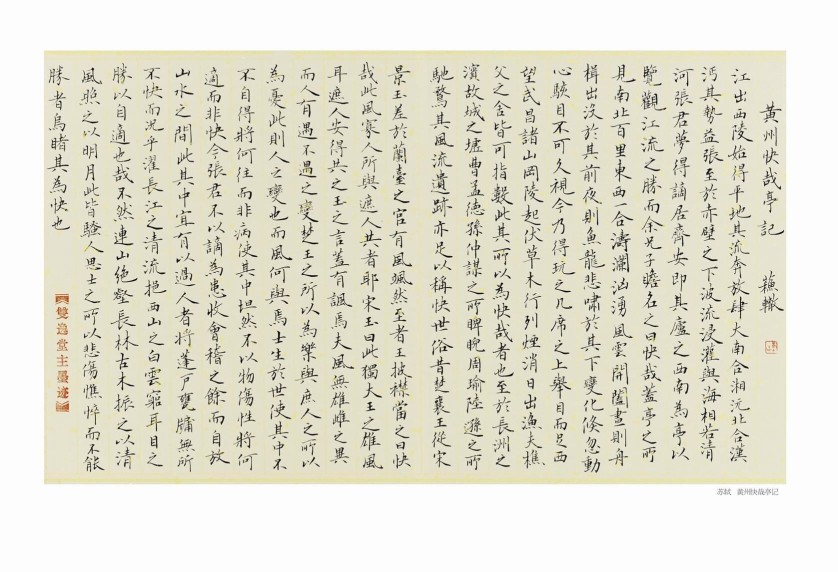 黃州快哉亭記 蘇轍
江出西陵始得平地其流奔放肆大南合湘沅北合漢
沔其勢益張至於赤壁之下波流浸灌與海相若清
河張君夢得謫居齊安即其廬之西南為亭以
覽觀江流之勝而余兄子瞻名之曰快哉蓋亭之所
見南北百里東西一合濤瀾洶湧風雲開闔晝則舟
楫出沒於其前夜則魚龍悲嘯於其下變化倏忽動
心駭目不可久視今乃得玩之几席之上舉目而足西
望武昌諸山岡陵起伏草木行列煙消日出漁夫樵
父之舍皆可指數此其所以為快哉者也至於長洲之
濱故城之墟曹孟德孫仲謀之所睥睨周瑜陸遜之所
馳騖其風流遺跡亦足以稱快世俗昔楚襄王從宋
景玉差於蘭臺之宮有風颯然至者王披襟當之曰快
哉此風寡人所與庶人共者耶宋玉曰此獨大王之雄風
耳庶人安得共之玉之言蓋有諷焉夫風無雄雌之異
而人有遇不遇之變楚王之所以為樂與庶人之所以
為憂此則人之變也而風何與焉士生於世使其中不
不自得將何往而非病使其中坦然不以物傷性將何
適而非快今張君不以謫為患收會稽之餘而自放
山水之間此其中宜有以過人者將蓬戶甕牖無所
不快而況乎濯長江之清流挹西山之白雲窮耳目之
勝以自適也哉不然連山絕壑長林古木振之以清
風照之以明月此皆騷人思士之所以悲傷憔悴而不能
勝者烏睹其為快也
雙逸堂主墨迹
苏轼 黄州快战亭记